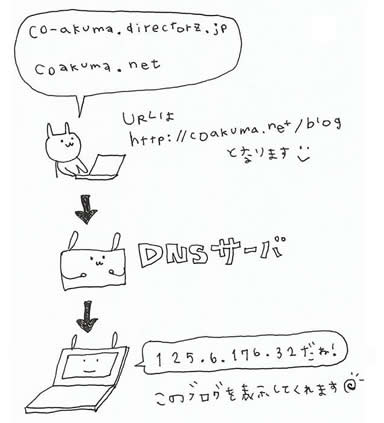 co-akuma.directorz.jp
coakuma.net
URLは
http://coakuma.net/blog
となります
DNSサーバ
125.6.176.32だね!
このブログを表示してくれます@